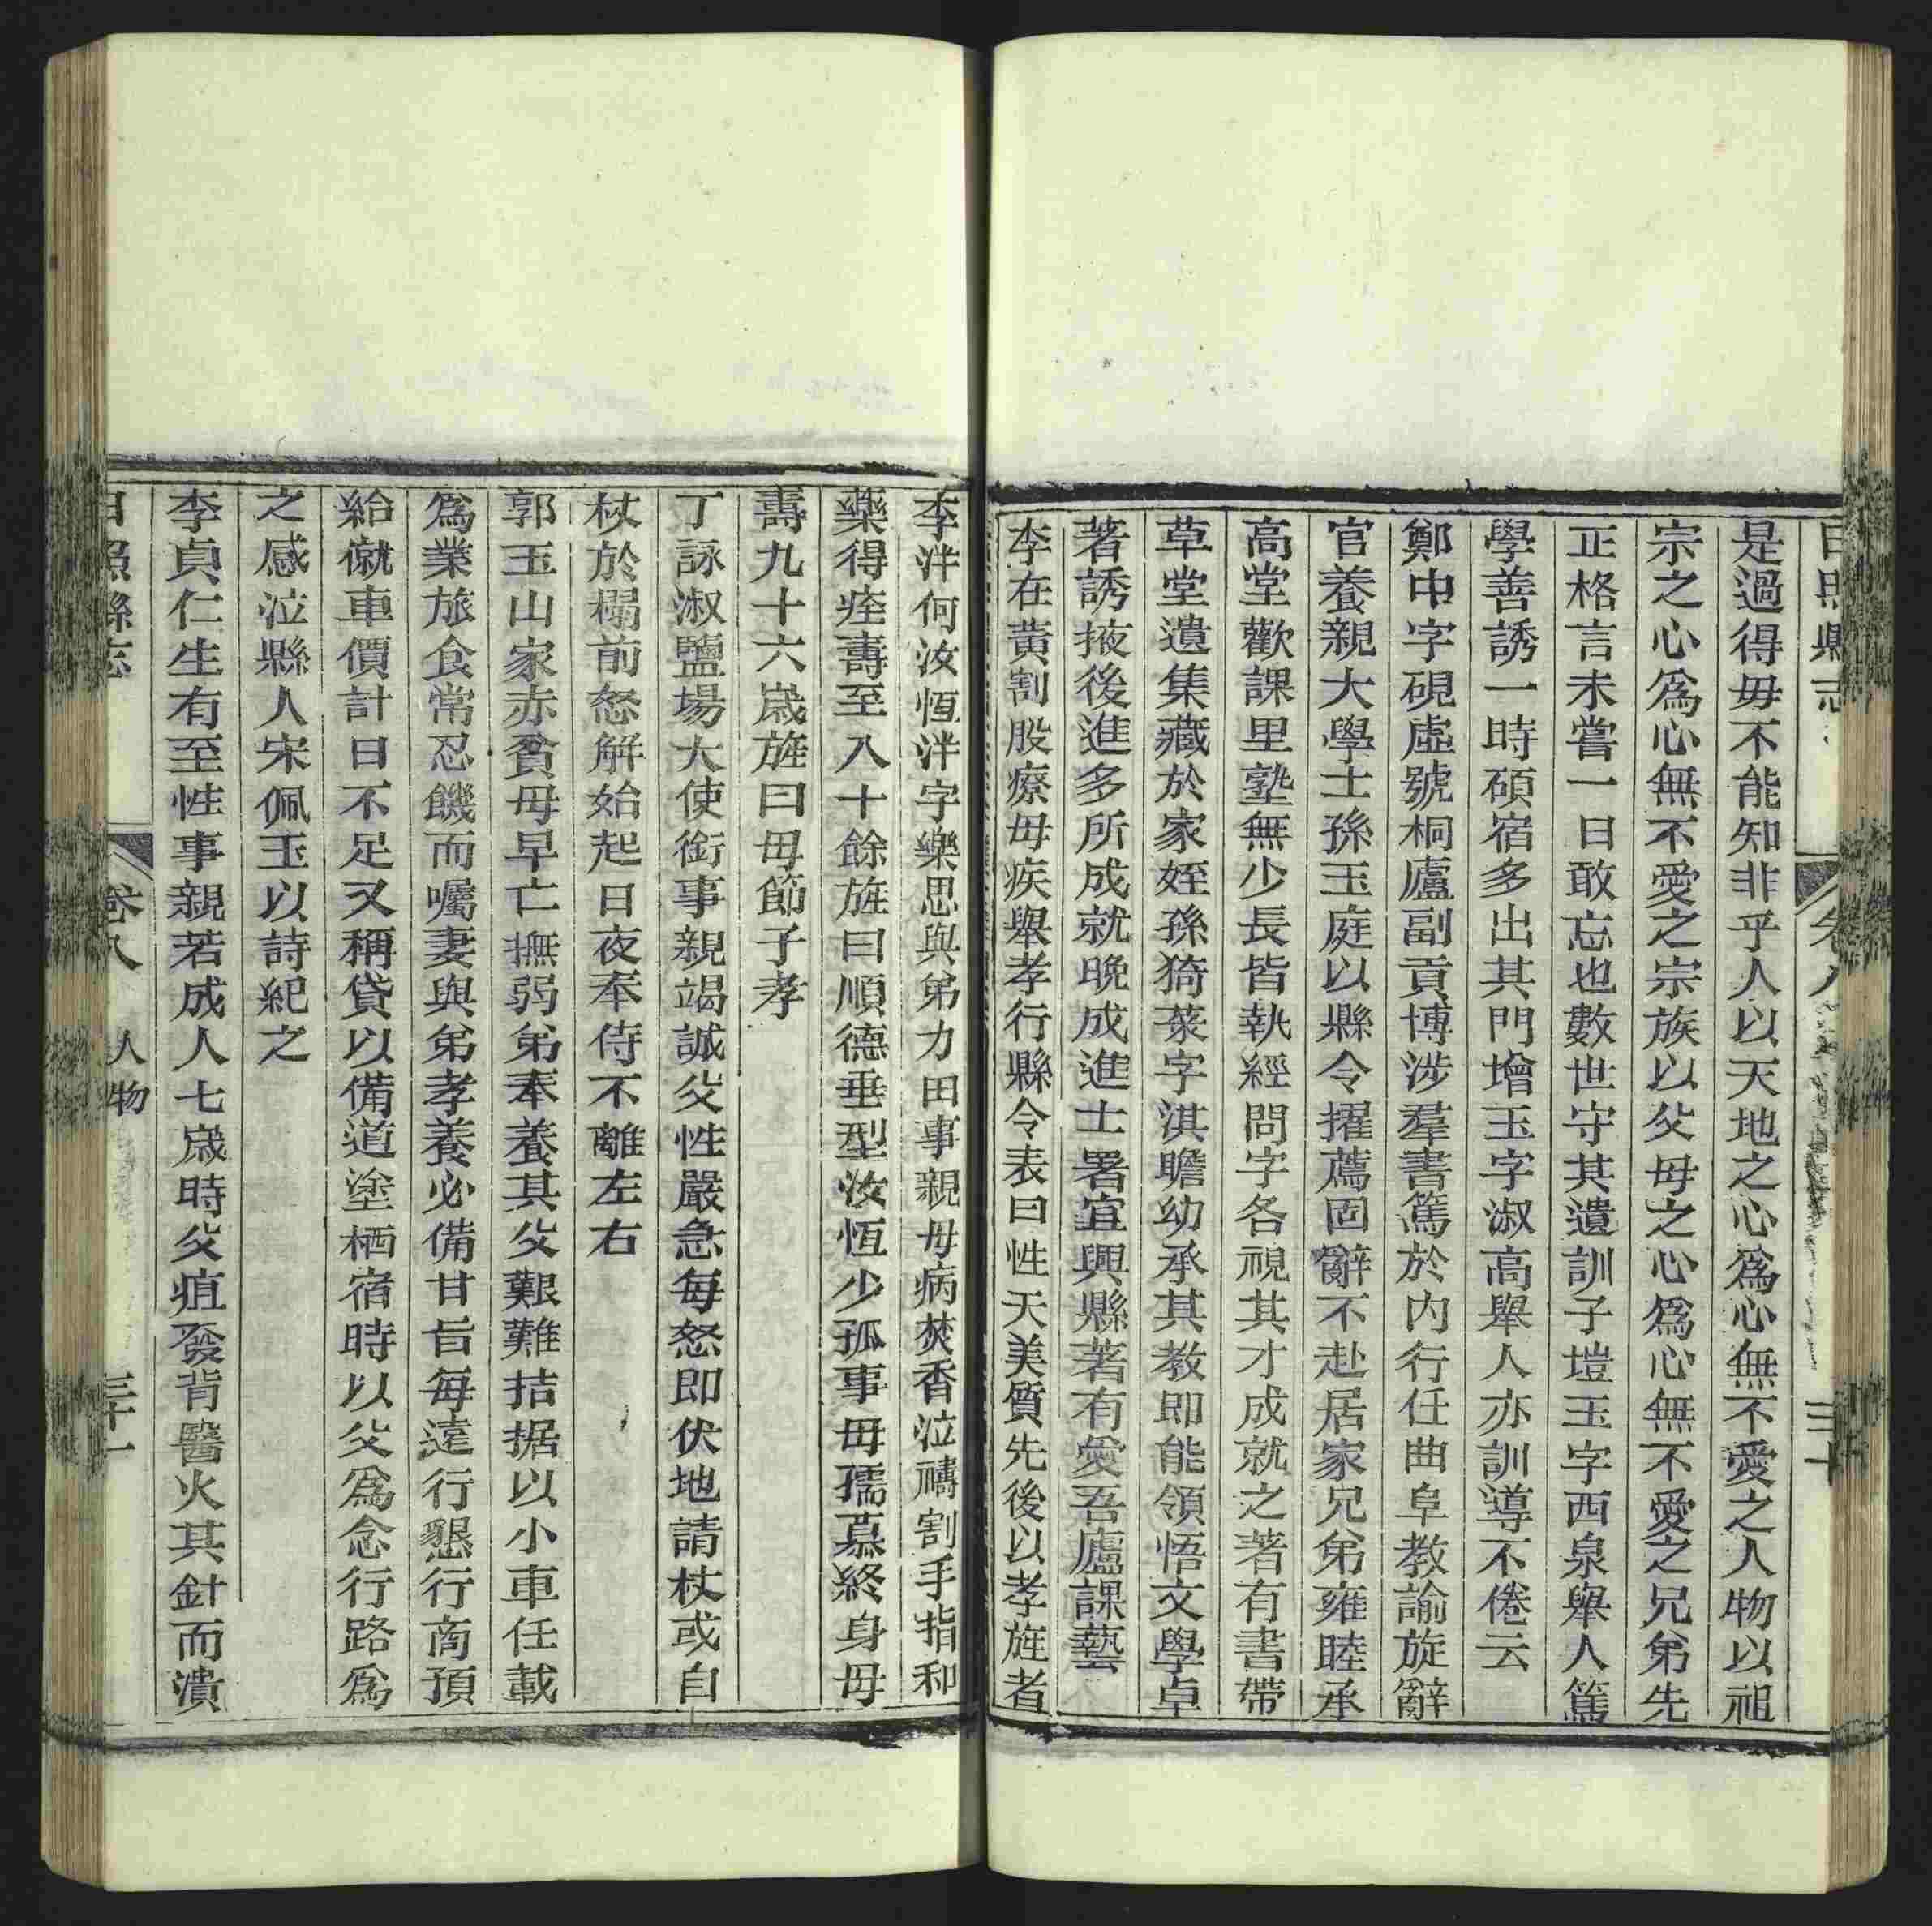 日照縣志 卷八 三十
是過得毋不能知非乎人以天地之心爲心無不愛之人物以祖
宗之心爲心無不愛之宗族以父母之心爲心無不愛之兄弟先
正格言未嘗一日敢忘也數世守其遺訓子塏玉字西泉舉人篤
學善誘一時碩宿多出其門增玉字淑高舉人亦訓導不倦云
鄭中字硯虛號桐廬副貢博涉羣書篤於内行任曲阜教諭旋辭
官養親大學士孫玉庭以縣令擢薦固辭不赴居家兄弟雍睦承
高堂歡課里塾無少長皆執經問字各視其才成就之著有書帶
草堂遺集藏於家姪孫猗菉字淇瞻幼承其教即能領悟文學卓
著誘掖後進多所成就晚成進士署宜興縣著有愛吾廬課藝
李在黄割股療母疾舉孝行縣令表曰性天美質先後以孝旌者
李泮何汝恆泮字樂思與弟力田事親母病焚香泣禱割手指和
藥得痊壽至八十餘旌曰順德垂型汝恆少孤事母孺慕終身母
壽九十六歲旌曰母節子孝
丁詠淑鹽場大使銜事親竭誠父性嚴急每怒即伏地請杖或自
杖於榻前怒解始起日夜奉侍不離左右
郭玉山家赤貧母早亡撫弱弟奉養其父艱難拮据以小車任載
爲業旅食常忍饑而囑妻與弟孝養必備甘旨每遠行懇行商預
給僦車價計日不足又稱貸以備道塗栖宿時以父爲念行路爲
之感泣縣人宋佩玉以詩紀之
李貞仁生有至性事親若成人七歲時父疽發背醫火其針而潰
日照縣志 卷八 人物 三十一